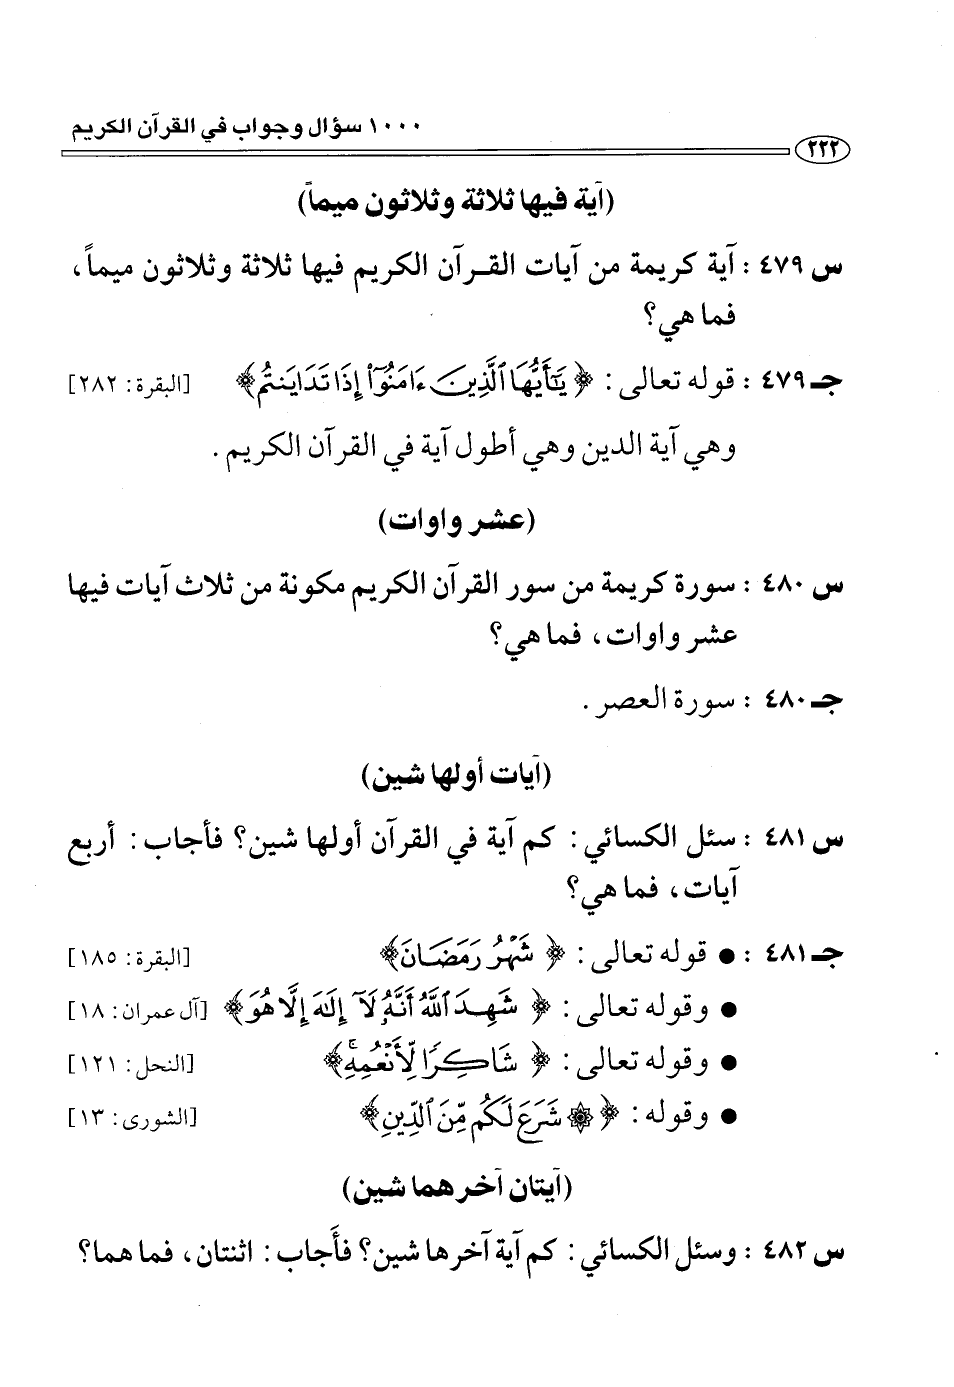 ١٠٠٠ سؤال وجواب في القرآن الكريم
٢٢٢
(آية فيها ثلاثة وثلاثون ميماً)
س ٤٧٩ : آية كريمة من آيات القرآن الكريم فيها ثلاثة وثلاثون ميماً،
فما هي؟
جـ ٤٧٩ : قوله تعالى : ﴿ يَٰٓأَيُّهَا ٱلَّذِينَ ءَامَنُوٓا۟ إِذَا تَدَايَنتُم﴾ [البقرة: ٢٨٢]
وهي آية الدين وهي أطول آية في القرآن الكريم .
(عشر واوات)
س ٤٨٠ : سورة كريمة من سور القرآن الكريم مكونة من ثلاث آيات فيها
عشر واوات، فما هي؟
جـ ٤٨٠ : سورة العصر .
(آيات أولها شين)
س ٤٨١ : سئل الكسائي : كم آية في القرآن أولها شين؟ فأجاب : أربع
آيات، فما هي؟
جـ ٤٨١ : ● قوله تعالى : ﴿ شَهْرُ رَمَضَانَ﴾ [البقرة: ١٨٥]
● وقوله تعالى : ﴿ شَهِدَ ٱللَّهُ أَنَّهُۥ لَآ إِلَٰهَ إِلَّا هُوَ﴾ [آل عمران: ١٨]
● وقوله تعالى : ﴿ شَاكِرًا لِّأَنْعُمِهِ ۚ﴾ [النحل: ١٢١]
● وقوله : ﴿ ۞ شَرَعَ لَكُم مِّنَ ٱلدِّينِ﴾ [الشورى: ١٣]
(آيتان آخرهما شين)
س ٤٨٢ : وسئل الكسائي : كم آية آخرها شين؟ فأَجاب : اثنتان، فما هما؟